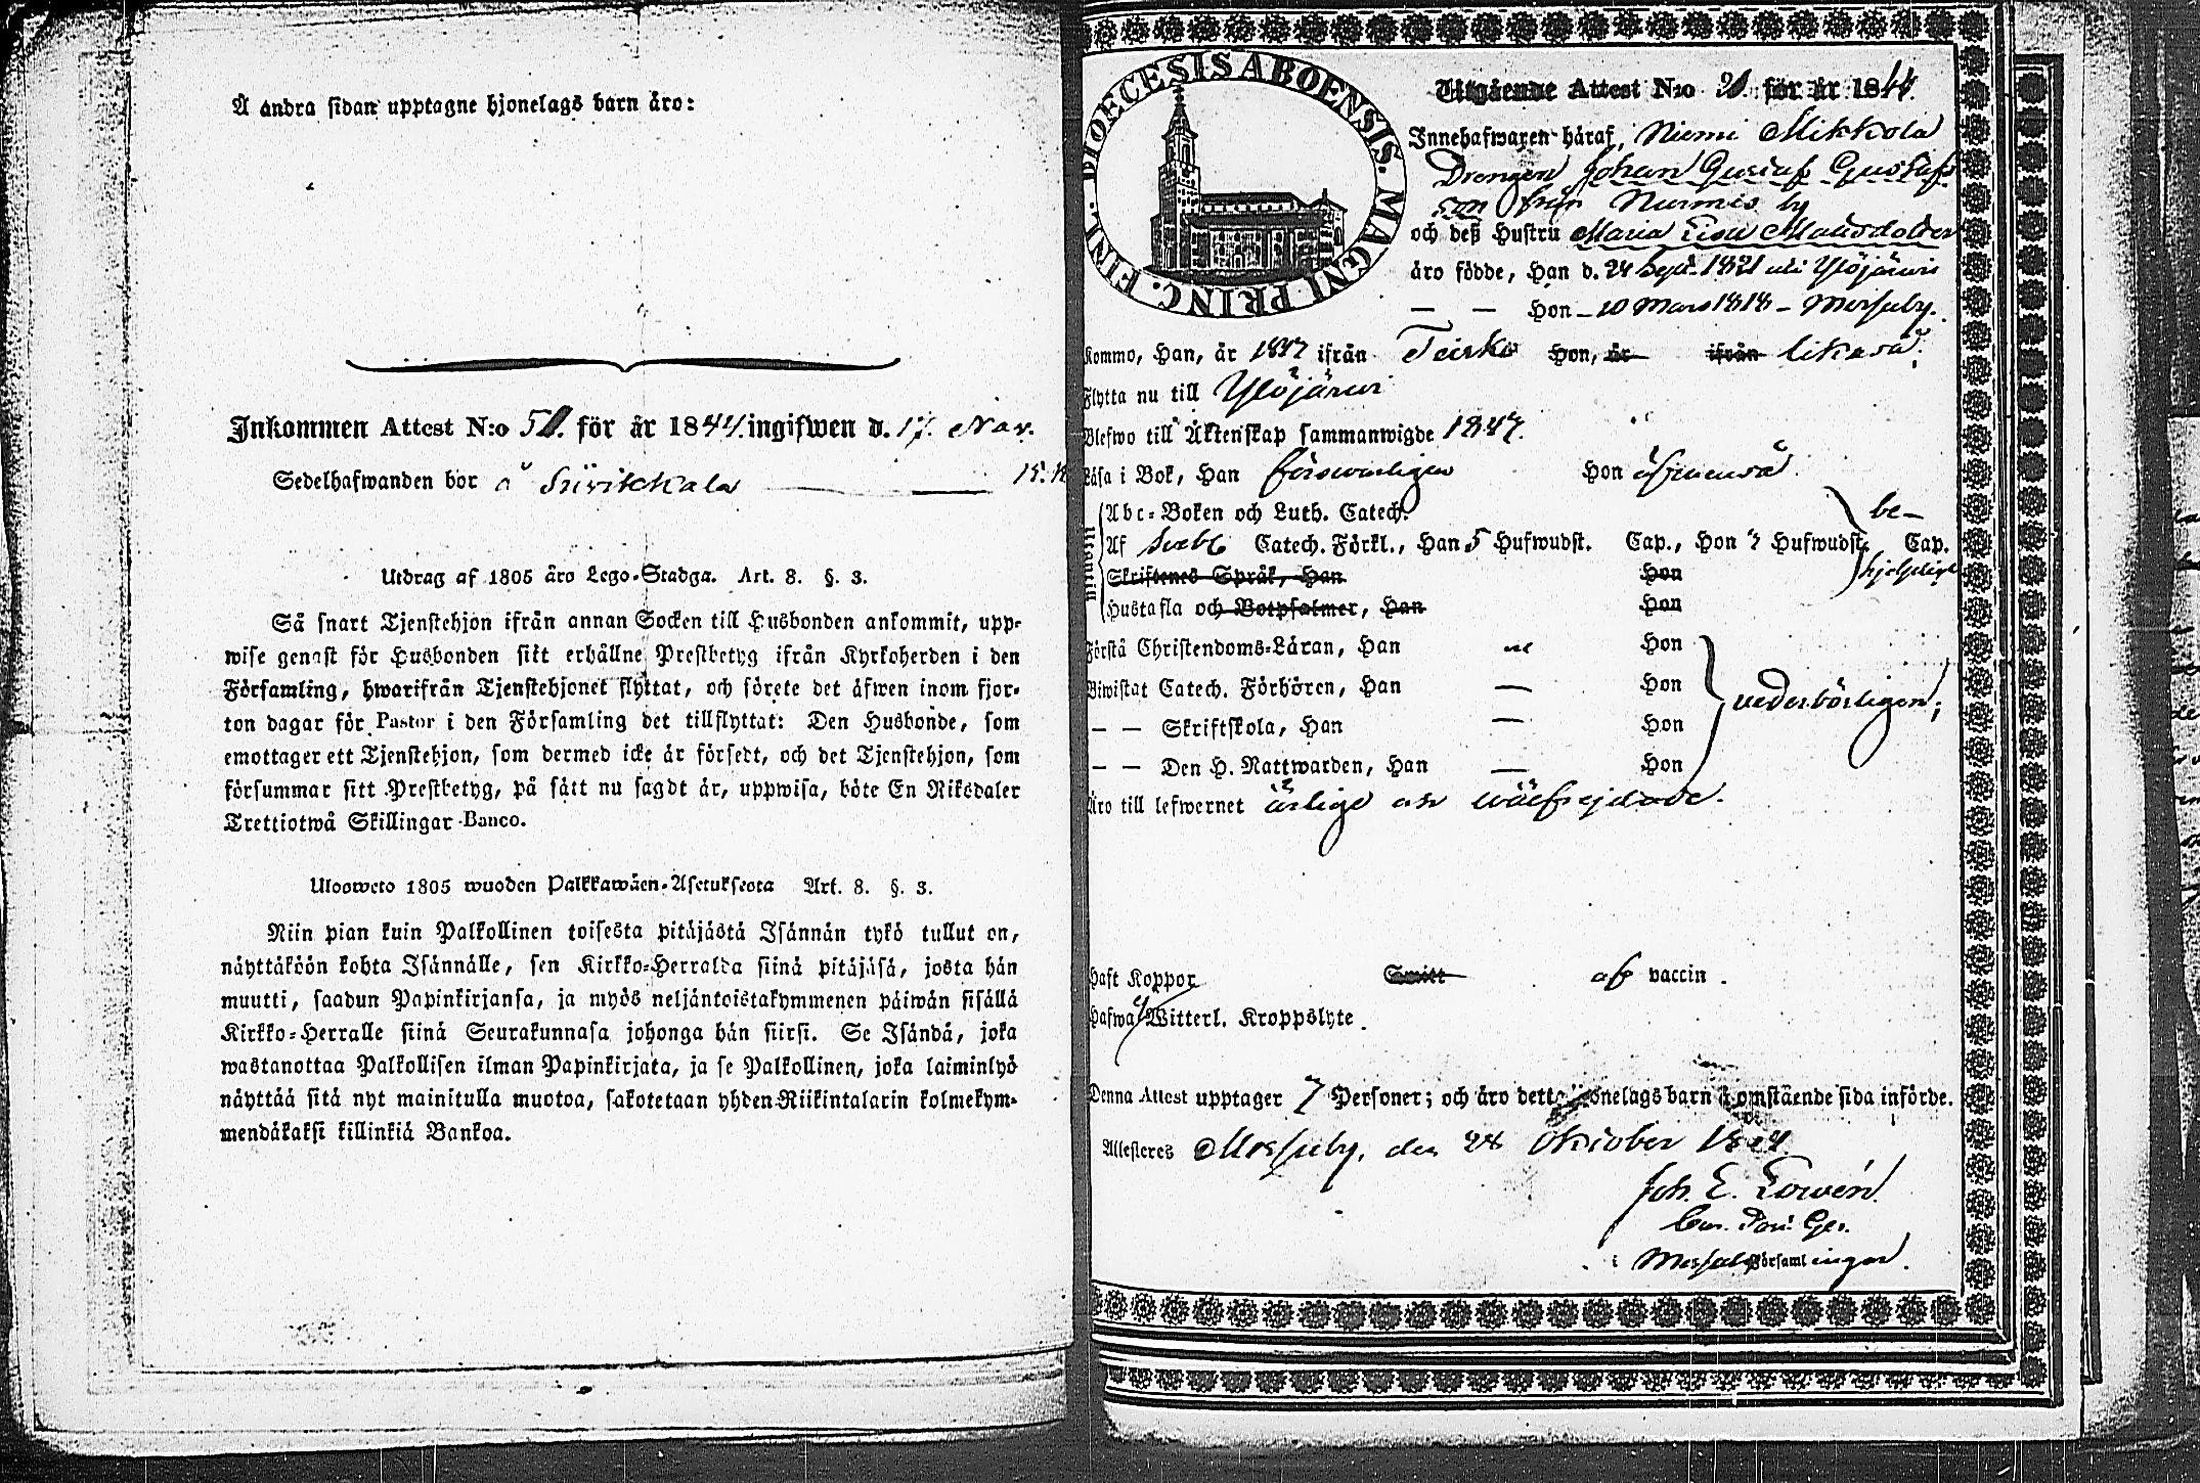 Å andra sidan upptagne hjonelags barn äro:
Inkommen Attest N:o 51. för år 1844. ingifwen d. 17. Nov.
Sedelhafwanden bor å Siivikkala
Utdrag af 1805 års Lego-Stadga. Art. 8. §. 3.
Så snart Tjenstehjon ifrån annan Socken till Husbonden ankommit, upp-
wise genast för Husbonden sitt erhållne Prestbetyg ifrån Kyrkoherden i den
Församling, hwarifrån Tjenstehjonet flyttat, och förete det äfwen inom fjor-
ton dagar för Pastor i den Församling det tillflyttat: Den Husbonde, som
emottager ett Tjenstehjon, som dermed icke är försedt, och det Tjenstehjon, som
försummar sitt Prestbetyg, på sätt nu sagdt är, uppwisa, böte En Riksdaler
Trettiotwå Skillingar Banco.
Uloswето 1805 wuoden Palkkawäen-Asetuksesta Art. 8. §. 3.
Niin pian kuin Palkollinen toisesta pitäjästä Isännän tykö tullut on,
näyttäköön kohta Isännälle, sen Kirkko-Herralda siinä pitäjäsä, josta hän
muutti, saadun Papinkirjansa, ja myös neljäntoistakymmenen päiwän sisällä
Kirkko-Herralle siinä Seurakunnasa johonga hän siirsi. Se Isändä, joka
wastanottaa Palkollisen ilman Papinkirjata, ja se Palkollinen, joka laiminlyö
näyttää sitä nyt mainitulla muotoa, sakotetaan yhden Riikintalarin kolmekym-
mendäkaksi killinkiä Bankoa.
DIOECESIS ABOENSIS. MAGNI PRINC. FINL.
Utgående Attest N:o för år 1844.
Innehafwaren häraf, Niemi Mikkola
Drengen Johan Gustaf Gustafs
son från Nurmis by
och deß Hustru Maria Lisu Matsdotter
äro födde, Han d. 24 Sept. 1821 uti Ylöjärwi
— — Hon – 10 Mars 1818 – Messuby.
Kommo, Han, år 1847 ifrån Teisko Hon, år ifrån likaså.
Flytta nu till Ylöjärwi
Blefwo till Äktenskap sammanwigde 1847.
Läsa i Bok, Han försvarligen Hon äfwenså
Abc-Boken och Luth. Catech.
Af Svebl Catech. Förkl., Han 5 Hufwudst. Cap., Hon Hufwudst. Cap. be-
hjelpligt
Skriftenes Språk, Han Hon
Hustafla och Botpsalmer, Han Hon
Förstå Christendoms-Läran, Han Hon
Biwistat Catech. Förhören, Han — Hon vederbörligen;
— — Skriftskola, Han — Hon
— — Den H. Nattwarden, Han — Hon
Äro till lefwernet ärlige och wälfrejdade.
Haft Koppor Smitt af vaccin.
Hafwa Witterl. Kroppslyte.
Denna Attest upptager 7 Personer; och äro detta Hjonelags barn å omstående sida införde.
Attesteres Messuby, den 28 Oktober 1844
Joh. E. Lowén
i Messuby Församlingar.